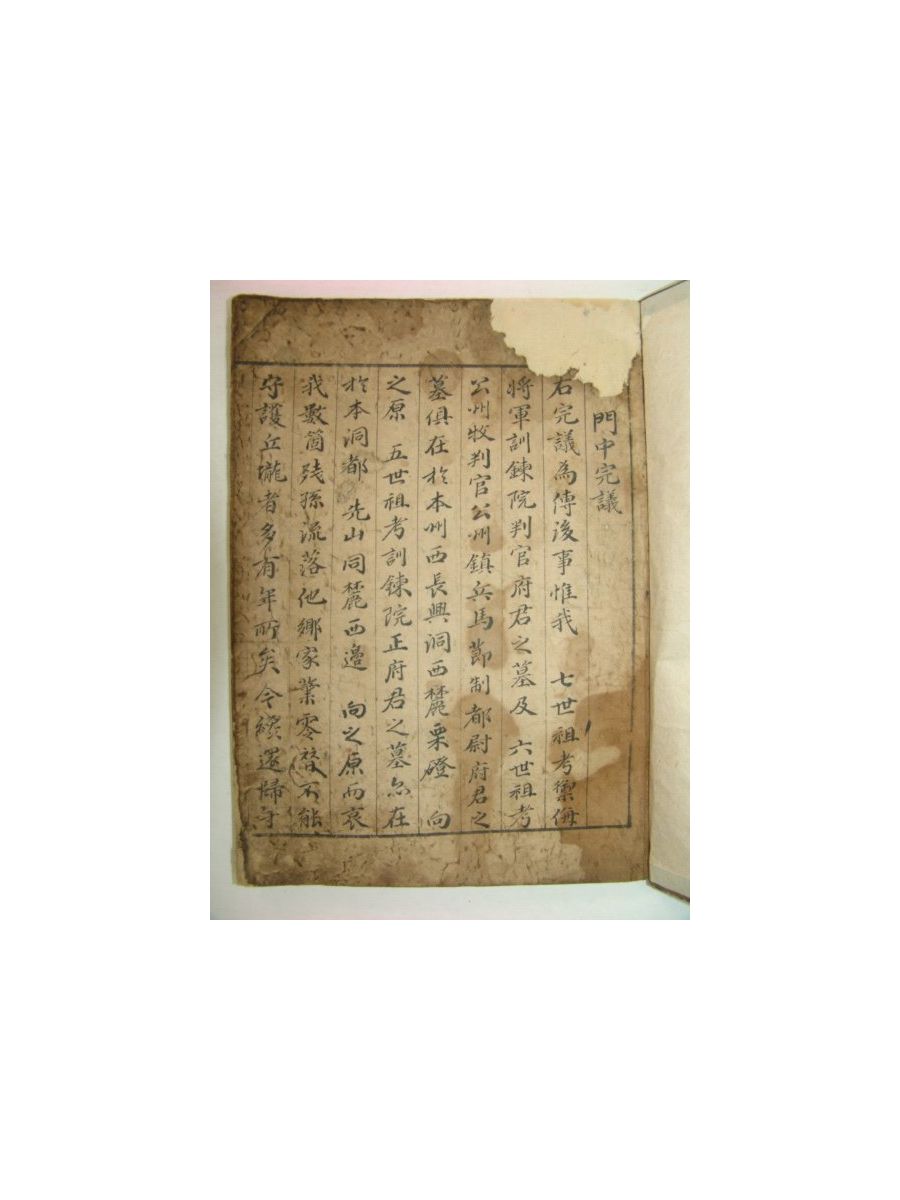 門中完議
右完議為傳後事惟我 七世祖考禦侮
將軍訓鍊院判官府君之墓及 六世祖考
公州牧判官公州鎮兵馬節制都尉府君之
墓俱在於本州西長興洞西麓栗磴 向
之原 五世祖考訓鍊院正府君之墓亦在
於本洞都 先山同麓西邊 向之原而哀
我數箇残孫流落他鄉家業零替不能
守護丘壠者多有年所矣今纔還歸守